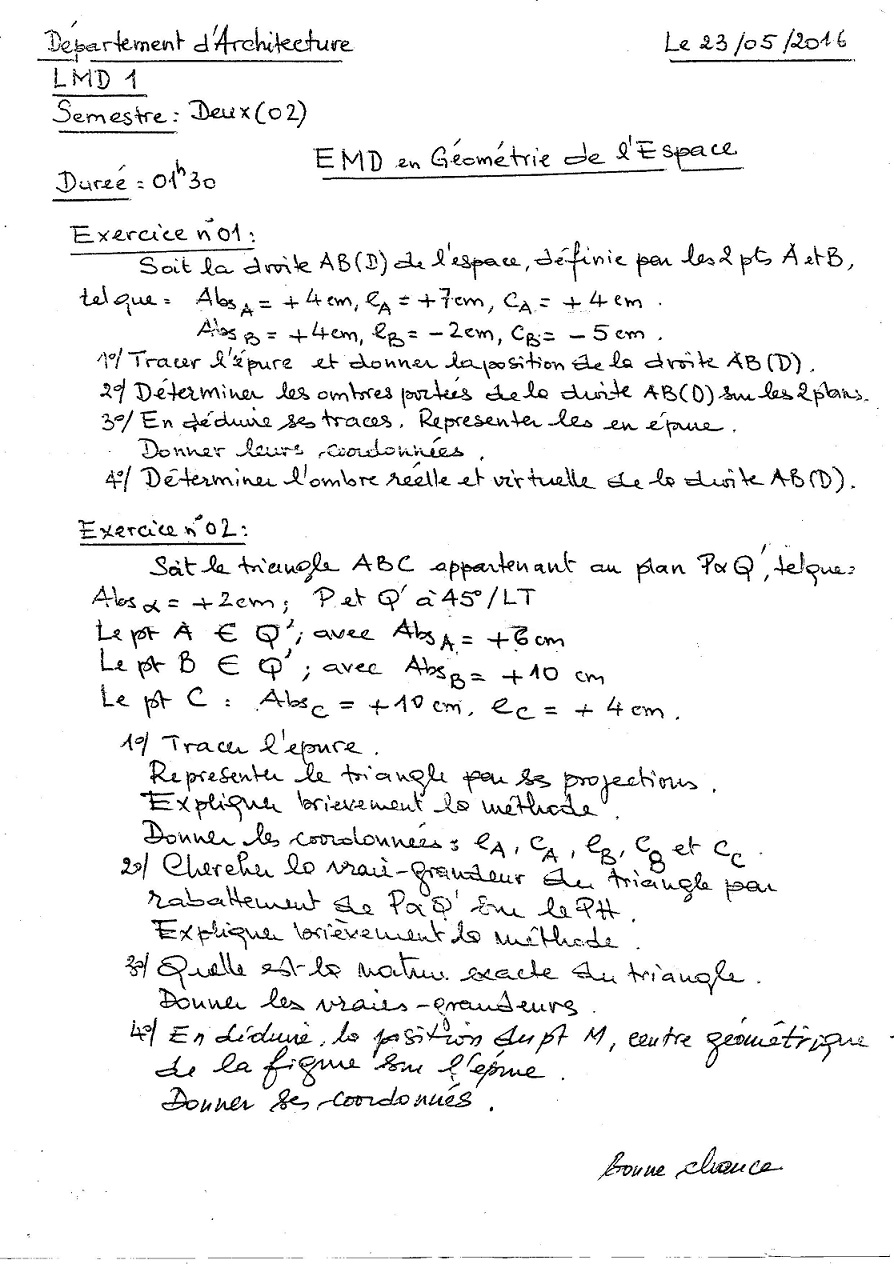 Département d'Architecture
Le 23/05/2016
LMD 1
Semestre : Deux (02)
EMD en Géométrie de l'Espace
Dureé : 01h30
Exercice n°01 :
Soit la droite AB(D) de l'espace, définie par les 2 pts A et B,
tel que : Abs A = +4 cm, eA = +7cm, CA = +4 cm .
Abs B = +4cm, eB = -2cm, CB = -5 cm .
1°/ Tracer l'épure et donner la position de la droite AB(D).
2°/ Déterminer les ombres portées de la droite AB(D) sur les 2 plans.
3°/ En déduire ses traces. Representer les en épure.
Donner leurs coordonnées.
4°/ Déterminer l'ombre réelle et virtuelle de la droite AB(D).
Exercice n°02 :
Soit le triangle ABC appartenant au plan PαQ', tel que :
Abs α = +2cm ; P et Q' à 45°/LT
Le pt A ∈ Q' ; avec Abs A = +6 cm
Le pt B ∈ Q' ; avec Abs B = +10 cm
Le pt C : Abs C = +10 cm, eC = +4 cm.
1°/ Tracer l'épure.
Représenter le triangle par ses projections.
Expliquer brievement la méthode.
Donner les coordonnées : eA, CA, eB, CB et CC.
2°/ Chercher la vraie-grandeur du triangle par
rabattement de PαQ' sur le PH.
Expliquer brièvement la méthode.
3°/ Quelle est la nature exacte du triangle.
Donner les vraies-grandeurs.
4°/ En déduire, la position du pt M, centre géométrique
de la figure sur l'épure.
Donner ses coordonnés.
Bonne chance